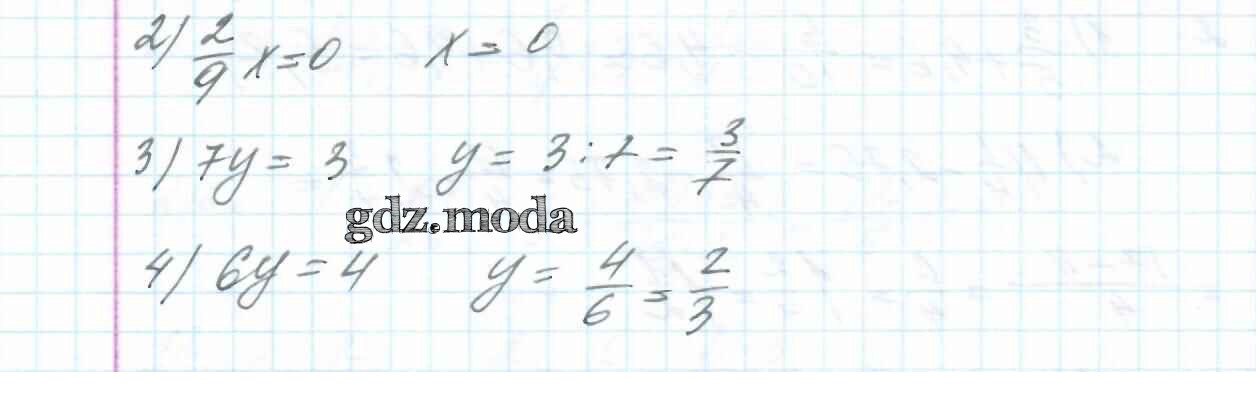 2) 2/9 x = 0 x = 0
3) 7y = 3 y = 3 : 7 = 3/7
gdz.moda
4) 6y = 4 y = 4/6 = 2/3